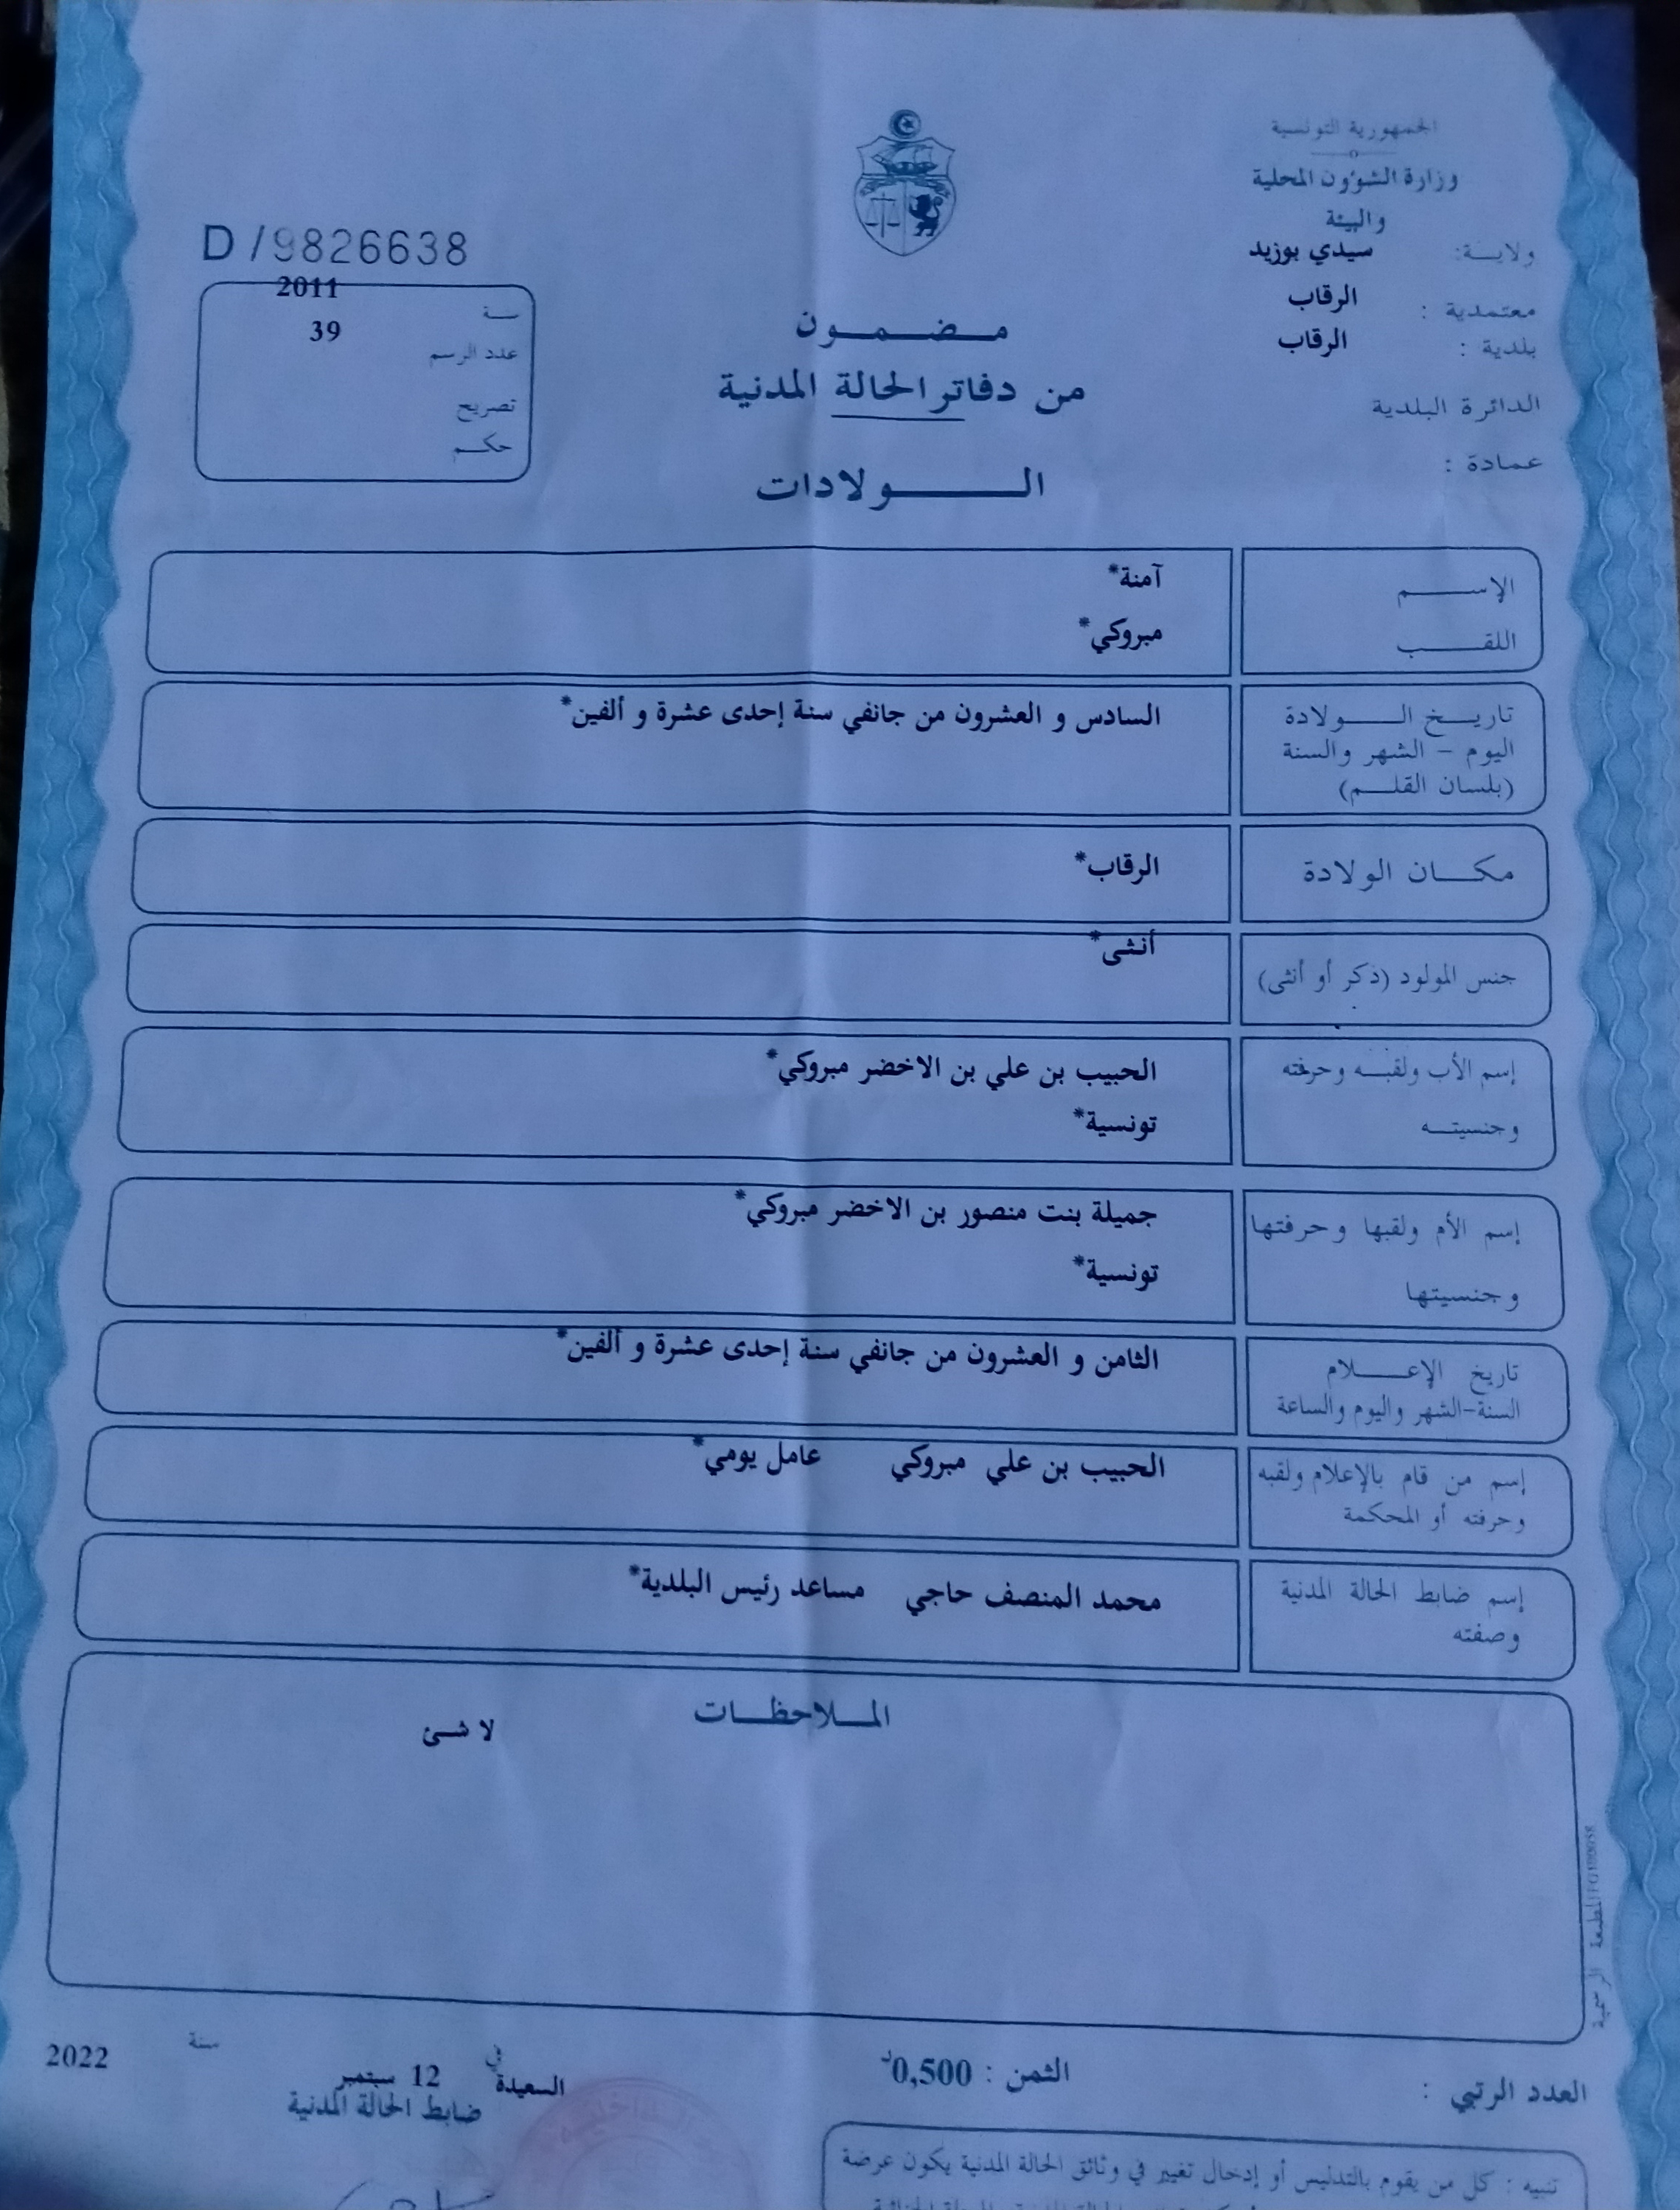 الجمهورية التونسية
وزارة الشؤون المحلية
والبيئة
ولايــة: سيدي بوزيد
معتمدية : الرقاب
بلدية : الرقاب
الدائرة البلدية
عمادة :
D/9826638
سنة 2011
عدد الرسم 39
تصريح
حكم
مضمون
من دفاتر الحالة المدنية
الولادات
الإسم آمنة*
اللقب مبروكي*
تاريخ الولادة السادس و العشرون من جانفي سنة إحدى عشرة و ألفين*
اليوم - الشهر والسنة
(بلسان القلم)
مكان الولادة الرقاب*
جنس المولود (ذكر أو أنثى) أنثى*
إسم الأب ولقبه وحرفته الحبيب بن علي بن الاخضر مبروكي*
وجنسيته تونسية*
إسم الأم ولقبها وحرفتها جميلة بنت منصور بن الاخضر مبروكي*
وجنسيتها تونسية*
تاريخ الإعلام الثامن و العشرون من جانفي سنة إحدى عشرة و ألفين*
السنة-الشهر واليوم والساعة
إسم من قام بالإعلام ولقبه الحبيب بن علي مبروكي عامل يومي*
وحرفته أو المحكمة
إسم ضابط الحالة المدنية محمد المنصف حاجي مساعد رئيس البلدية*
وصفته
الملاحظات
لا شئ
المطبعة الرسمية
العدد الرتبي :
الثمن : 0,500د
السعيدة في 12 سبتمبر سنة 2022
ضابط الحالة المدنية
تنبيه : كل من يقوم بالتدليس أو إدخال تغيير في وثائق الحالة المدنية يكون عرضة